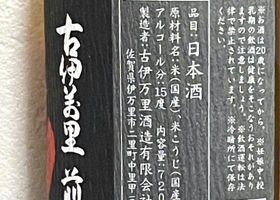 ※お酒は20歳になってから ※妊娠中・授
乳期の飲酒は健康をそこなうおそれがあり
ますので注意しましょう。※飲酒運転は法
律で禁止されています。※冷暗所にて保存
品目：日本酒
原材料名：米（国産）、米こうじ（国産
アルコール分：15度 内容量：720
製造者：古伊万里酒造有限会社
佐賀県伊万里市二里町中里甲三
古伊万里 前